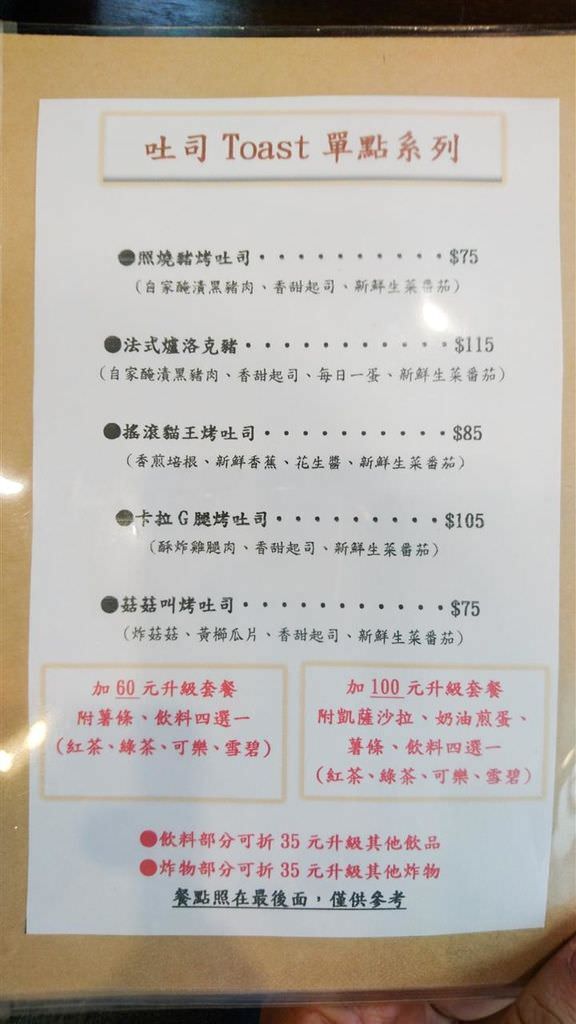 吐司 Toast 單點系列
●照燒豬烤吐司··········$75
(自家醃漬黑豬肉、香甜起司、新鮮生菜番茄)
●法式爐洛克豬···········$115
(自家醃漬黑豬肉、香甜起司、每日一蛋、新鮮生菜番茄)
●搖滾貓王烤吐司··········$85
(香煎培根、新鮮香蕉、花生醬、新鮮生菜番茄)
●卡拉G腿烤吐司·········$105
(酥炸雞腿肉、香甜起司、新鮮生菜番茄)
●菇菇叫烤吐司···········$75
(炸菇菇、黃櫛瓜片、香甜起司、新鮮生菜番茄)
加 60 元升級套餐
附薯條、飲料四選一
(紅茶、綠茶、可樂、雪碧)
加 100 元升級套餐
附凱薩沙拉、奶油煎蛋、
薯條、飲料四選一
(紅茶、綠茶、可樂、雪碧)
●飲料部分可折 35 元升級其他飲品
●炸物部分可折 35 元升級其他炸物
餐點照在最後面，僅供參考